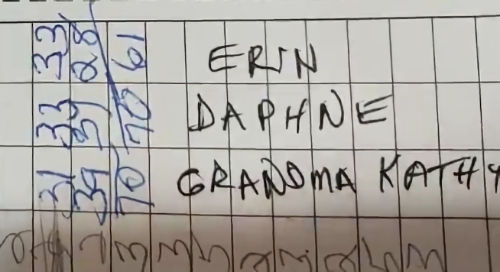 33 28 61 ERIN
33 37 70 DAPHNE
31 39 70 GRANDMA KATHY